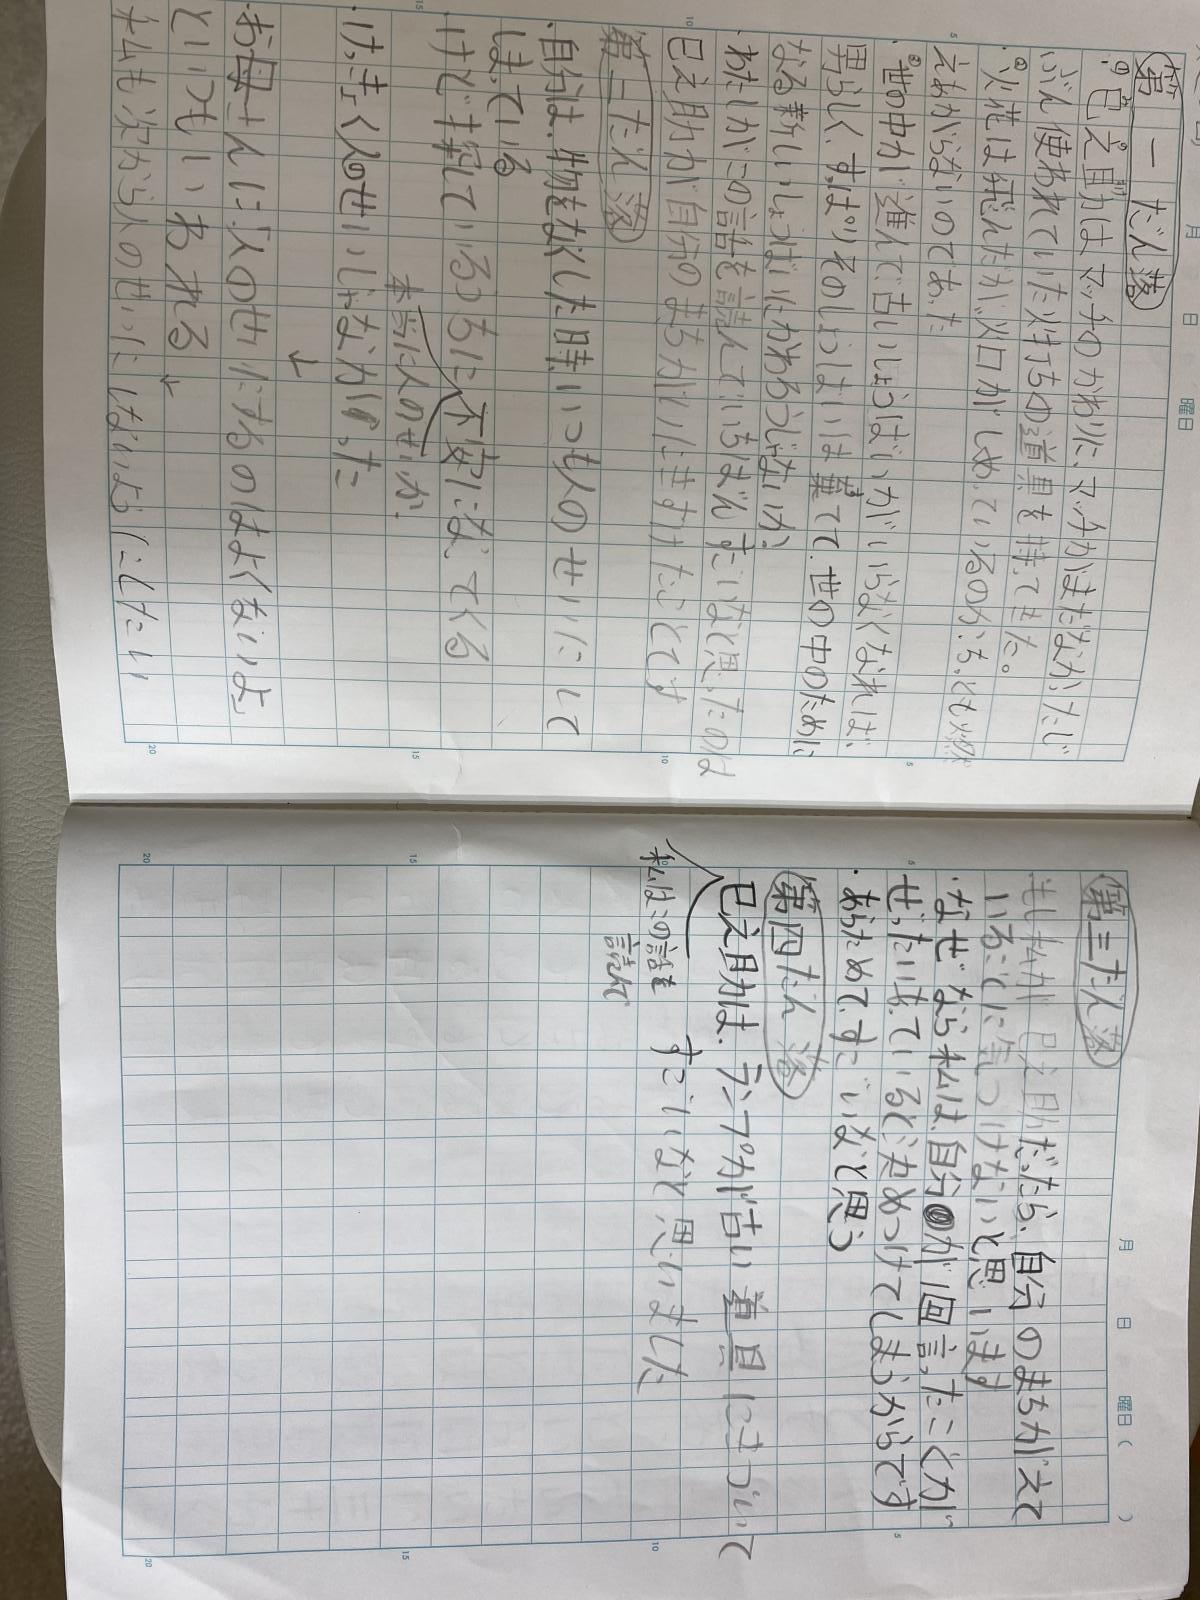 月 日 曜日
第一だん落
・巳之助はマッチのかわりに、マッチがまだなかったじ
ぶん使われていた火打ちの道具を持てきた。
・火花は飛んだが火口がしめっているのか、ちっとも燃
えあがらないのであった
・世の中が進んで古いしょうばいがいらなくなれば、
男らしく、すっぱりそのしょうばいは棄てて、世の中のために
なる新しいしょうばいにかわろうじゃないか
・わたしがこの話を読んでいちばんすごいなと思ったのは
巳之助が自分のまちがいにきずけたことです
第二だん落
・自分は、物をなくした時いつも人のせいにして
しまっている
・けど探しているうちに不安になってくる
本当に人のせいか、
・けっきょく人のせいじゃなかった
↓
・お母さんに「人のせいにするのはよくないよ」
といつもいわれる
↓
私も次から人のせいにしないようにしたい
月 日 曜日( )
第三だん落
もし私が巳之助だったら、自分のまちがえて
いることに気づけないと思います
・なぜなら私は、自分が1回言ったことが
ぜったいあっているときめつけてしまうからです
・あらためて、すごいなと思う
第四だん落
巳之助は、ランプが古い道具にきづいて
私はこの話を
読んで
すごいなと思いました